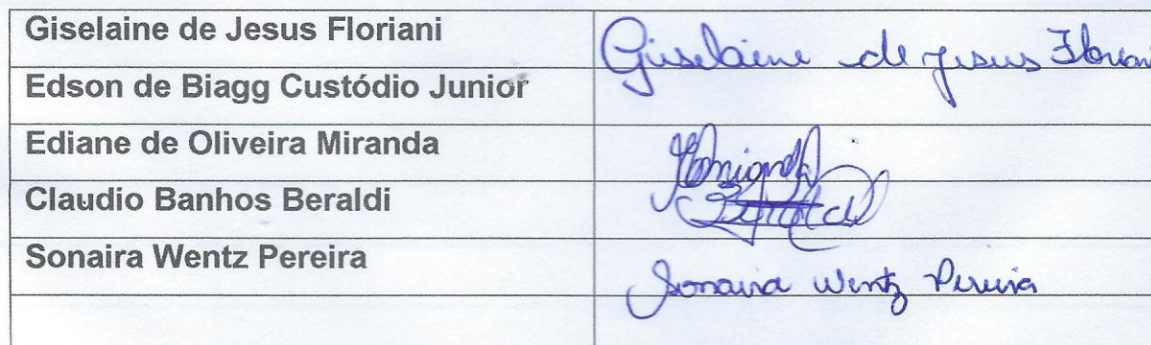 Giselaine de Jesus Floriani Giselaine de Jesus Floriani
Edson de Biagg Custódio Junior
Ediane de Oliveira Miranda
Claudio Banhos Beraldi
Sonaira Wentz Pereira Sonaira Wentz Pereira